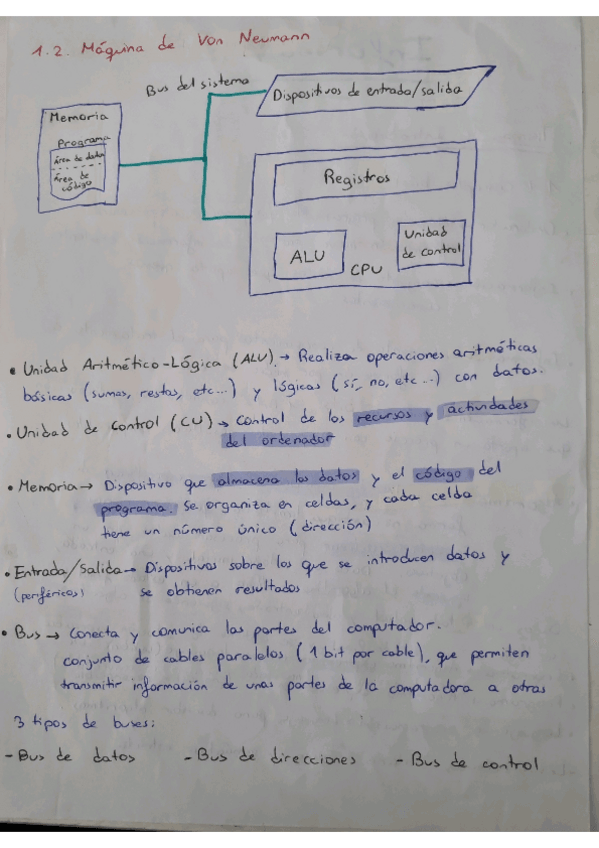 1.2. Máquina de Von Neumann
Bus del sistema
Dispositivos de entrada/salida
Memoria
Programa
Área de datos
Área de
código
Registros
ALU
Unidad
de control
CPU
• Unidad Aritmético-Lógica (ALU). → Realiza operaciones aritméticas
básicas (sumas, restas, etc...) y lógicas (sí, no, etc...) con datos.
• Unidad de control (CU) → Control de los recursos y actividades
del ordenador
• Memoria → Dispositivo que almacena los datos y el código del
programa. Se organiza en celdas, y cada celda
tiene un número único (dirección)
• Entrada/Salida → Dispositivos sobre los que se introducen datos y
(periféricos) se obtienen resultados
• Bus → Conecta y comunica las partes del computador.
conjunto de cables paralelos (1 bit por cable), que permiten
transmitir información de unas partes de la computadora a otras
3 tipos de buses:
- Bus de datos - Bus de direcciones - Bus de control